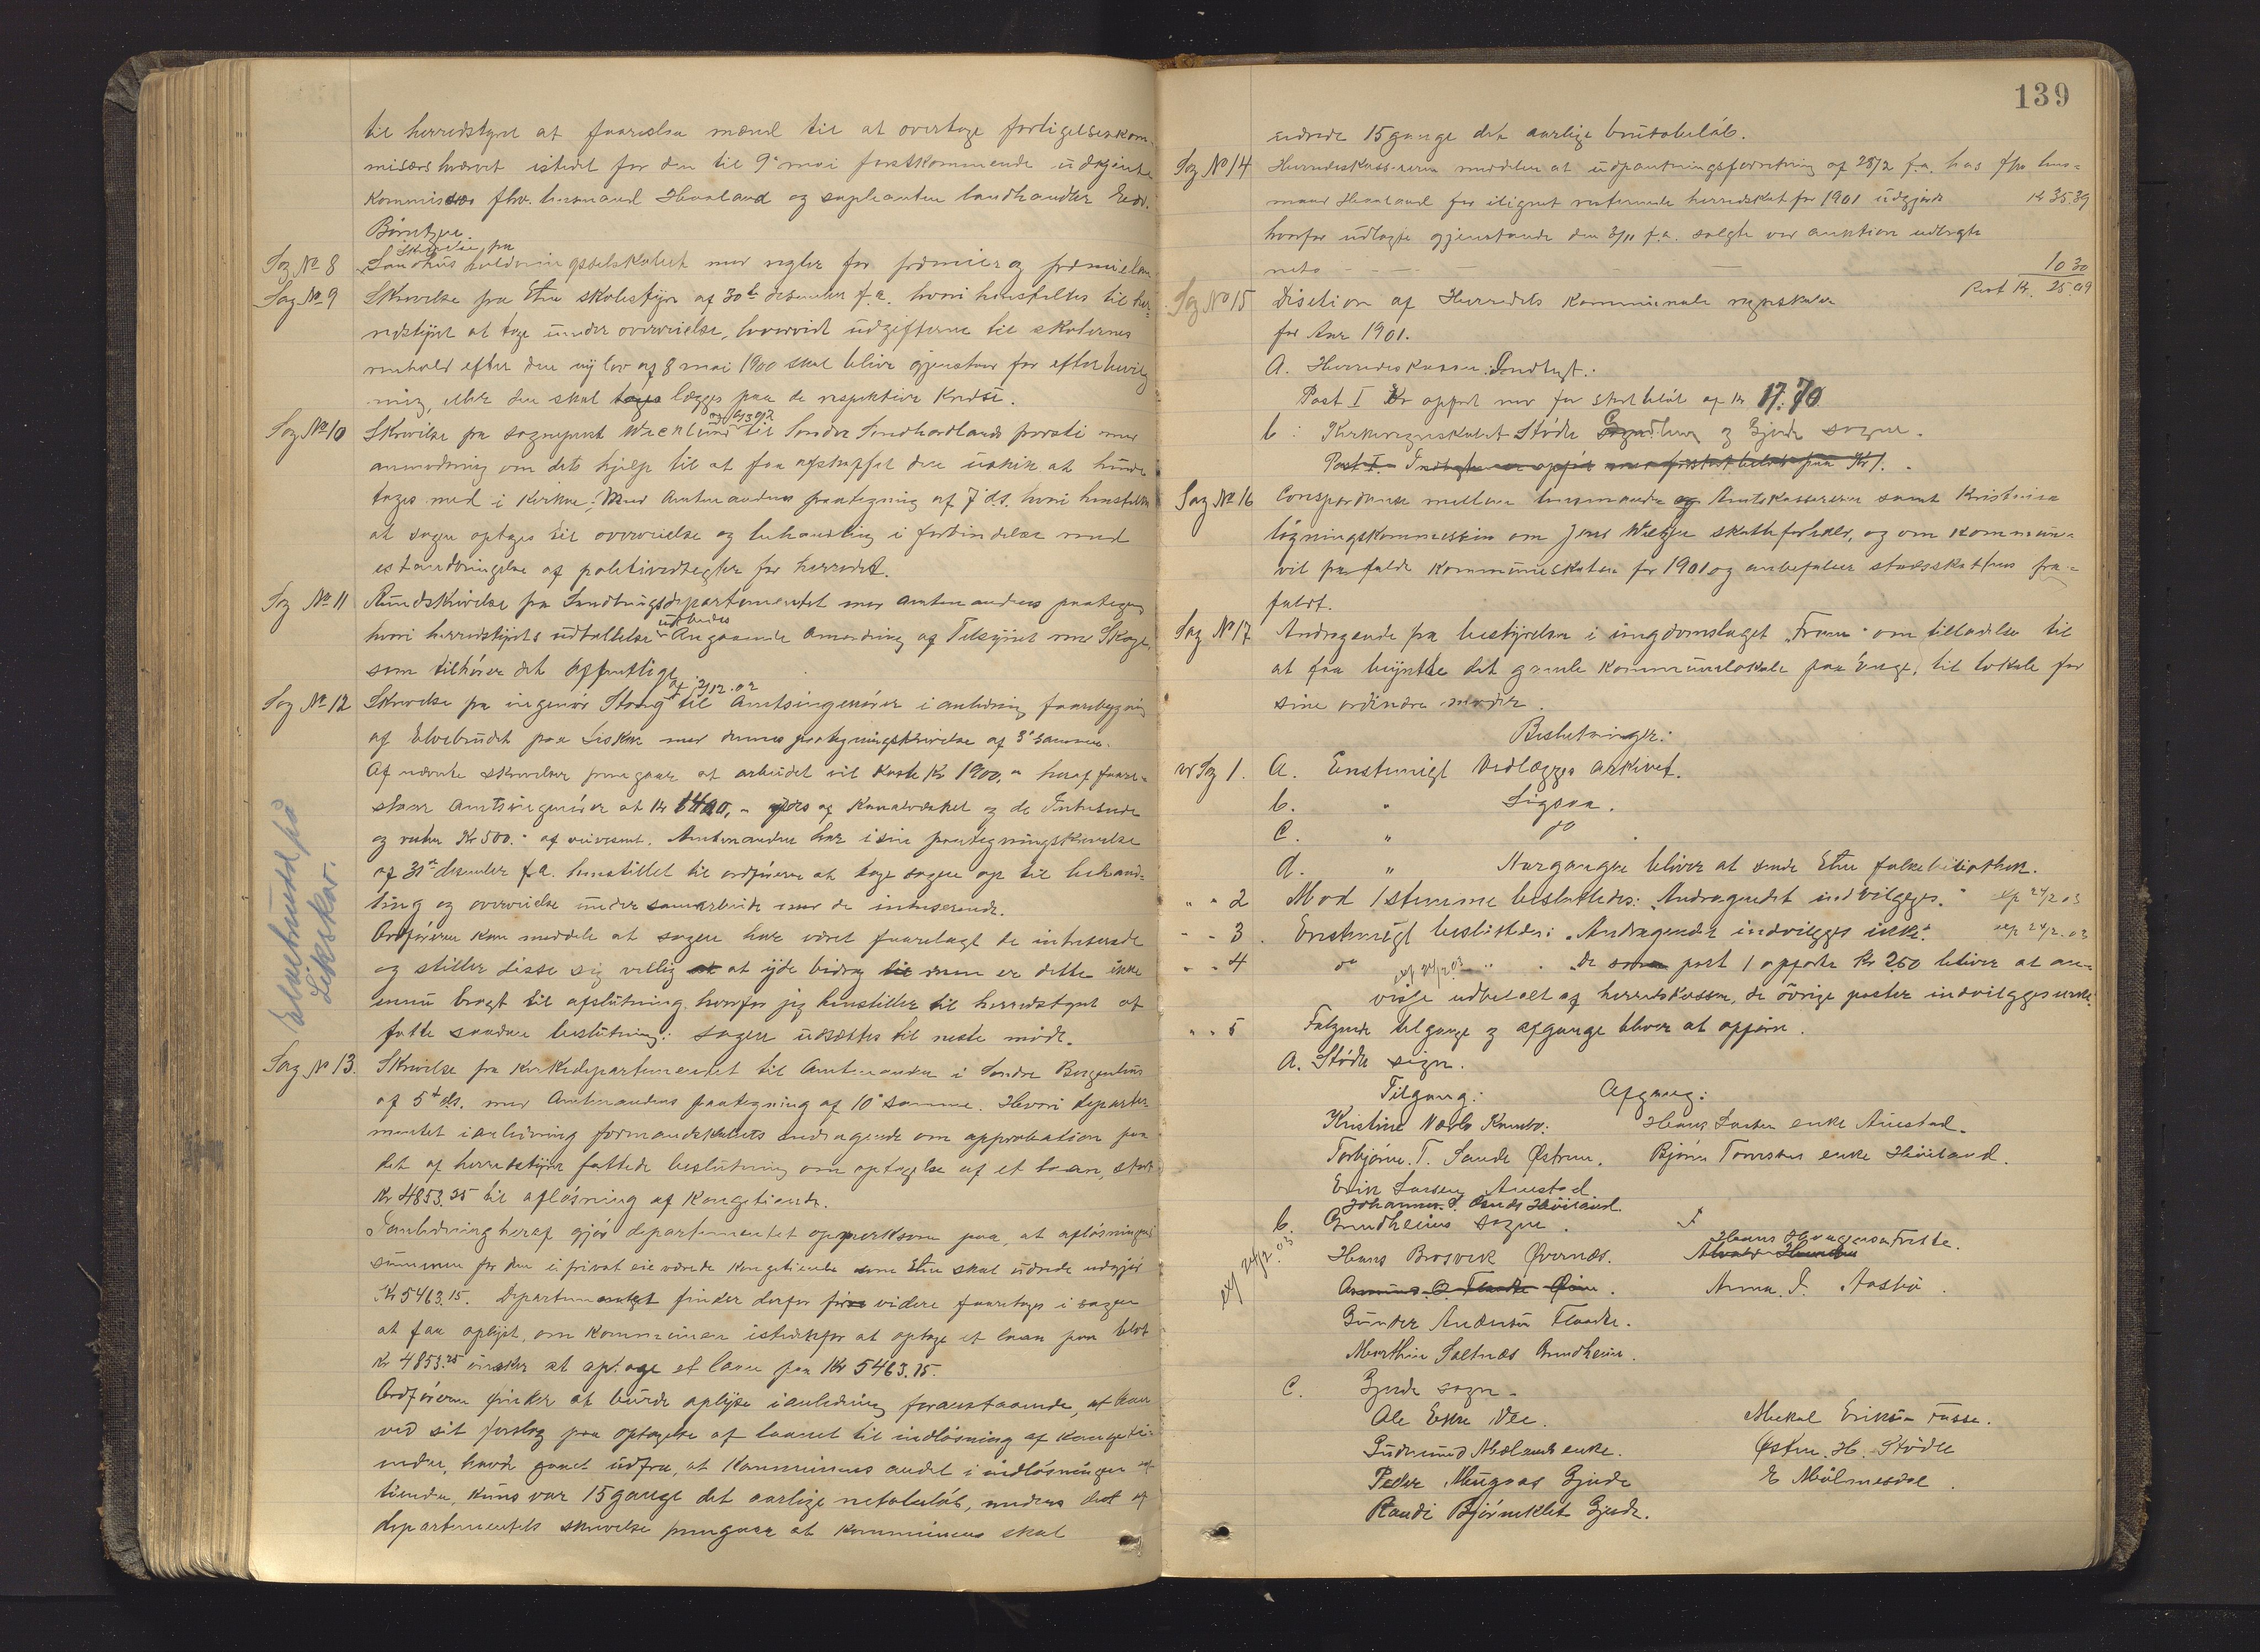 til herredstyret at foreslaa mænd til at overtage forligelseskom-
misærhvervet istedet for den til 9de mai førstkommende udgjente
Kommissær fhv. lensmand Haaland og supleanten landhandler Edv.
Børretzen.
Sag No 8 Skrivelse fra Landhusholdningsselskabet med regler for præmier og præmielaan
Sag No 9 Skrivelse fra Etne skolestyre af 30te desember f.a. hvori henstilles til her-
redstyret at tage under overveielse, hvorvidt udgifterne til skolernes
renhold efter den ny lov af 8 mai 1900 skal blive gjenstand for efterbevilg
ning, eller den skal tages lægges paa de respektive Kredse.
Sag No 10 Skrivelse fra sogneprest Wæcklund til Søndre Søndhordlands provsti med
anmodning om dets hjælp til at faa afskaffet den uskik at hunde
tages med i Kirkene. Med Amtmandens paategning af 7 ds. hvori henstilles
at sagen optages til overveielse og behandling i forbindelse med
istandbringelse af politivedtægter for herredet.
Sag No 11 Rundskrivelse fra Landbrugsdepartementet med amtmandens paategning
hvori herredstyrets udtallelse udbedes Angaaende Anordning af Tilsynet med Skoge,
som tilhører det offentlige
Sag No 12 Skrivelse fra ingeniør Stang af 2/12.02 til Amtsingeniøren i anledning forebygning
af Elvebrudet paa Leskar med dennes paategningsskrivelse af 3de samme.
Af nævnte skrivelser fremgaar at arbeidet vil koste Kr 1900,- heraf fore-
slaar Amtsingeniøren at Kr 1400,- ydes af Kanalvæsenet og de Interesserede
og resten Kr 500.- af veivesenet. Amtmanden har i sin paategningsskrivelse
af 31te desember f.a. henstillet til ordføreren at tage sagen op til behand-
ling og overveielse under samarbeide med de interesserede.
Ordføreren kan meddele at sagen har været forelagt de interesserede
og stiller disse sig villig at at yde bidrag til men er dette ikke
ennu bragt til afslutning hvorfor jeg henstiller til herredstyret at
fatte saadan beslutning: sagen udsættes til neste møde.
Elvebrudd på
Leksskar.
Sag No 13. Skrivelse fra Kirkedepartementet til Amtmanden i Søndre Bergenhus
af 5te ds. med Amtmandens paategning af 10de samme. Hvori departe-
mentet i anledning formandskabets andragende om approbation paa
det af herredstyret fattede beslutning om optagelse af et laan, stort
Kr 4853.25 til afløsning af Kongetiende.
I anledning heraf gjør departementet opmerksom paa, at afløsnings
summen for den i privat eie værende Kongetiende som Etne skal udrede udgjør
Kr 5463.15. Departementet finder derfor før videre foretages i sagen
at faa oplyst, om Kommunen istedetfor at optage et laan paa blot
Kr 4853.25 ønsker at optage et laan paa Kr 5463.15.
Ordføreren finder at burde oplyse i anledning foranstaaende, at han
ved sit forslag paa optagelse af laanet til indløsning af Kongeti-
enden, havde gaaet udfra, at Kommunens andel i indløsningen af
tienden, kuns var 15 gange det aarlige nettobeløb, medens det af
departementets skrivelse fremgaar at Kommunens skal
139
udrede 15 gange det aarlige bruttobeløb.
Sag No 14 Herredskassereren meddeler at udpantningsforretning af 28/2 f.a. hos fhv lens-
mand Haaland for ilignet resterende herredsskat for 1901 udgjorde Kr 35.39
hvorfor udlagte gjenstande den 3/11 f.a. solgte ved auktion udbragte
neto - - - 10.30
Rest Kr. 25.09
Sag No 15 Desition af Herredets Kommunale regnskaber
for Aar 1901.
A. Herredskassen: Indtægt.
Post I Er opført med for stort beløb af Kr 17.70
b: Kirkeregnskabet Stødle Grindheim og Gjerde sogne.
Post I. Indtægten er opført med forstort beløb paa Kr 1.
Sag No 16 Corespondanse mellem lensmanden og Amtskassereren samt Kristiania
ligningskommission om Jens Wælgen skatteforhold, og om Kommun-
vil frafalde Kommuneskatten for 1901 og anbefaler stadsskattens fra-
faldt.
Sag No 17 Andragende fra bestyrelsen i ungdomslaget "Fram" om tilladelse til
at faa benytte det gamle Kommunelokale paa Enge, til lokale for
sine ordinære møder.
Beslutninger:
ved Sag 1. A. Enstemigt Vedlægges arkivet.
b. " Ligsaa.
C. " do
d. " Aargangene bliver at sende Etne folkebibliothek.
" " 2 Mod 1 stemme besluttedes: "Andragendet indvilgges." exp 24/2 03
" " 3. Enstemigt besluttedes: "Andragendet indvilgges ikke." exp 24/2.03
" " 4 do exp 24/2 03 " "De som post 1 opførte Kr 250 bliver at an-
vise udbetalt af herredskassen, de øvrige poster indvilgges ikke.
" " 5 Følgende tilgange og afgange bliver at opføre.
A. Stødle sogn.
Tilgang: Afgang:
Kristine Nærbø Kambo. Hans Larsen enke Austad.
Torbjørn T. Sande Østrem. Bjørn Tormodsen enke Høiland.
Erik Larsen Austad
Johannes S. Sande Høiland.
b. Grindheims sogn.
exp 24/2 03
Hans Brosvik Øvernæs. Hans Haagensen Frette.
Anna I. Aasbø.
Gunder Andersen Flaade.
Marthin Saltnæs Grindheim.
C. Gjerde sogn.
Ole Eske Vee. Mikal Eriksen Fosse.
Gudmund Mælands enke. Østen H. Stødle
Peder Mugaas Gjerde E Mølmesdal.
Randi Bjørneklet Gjerde.